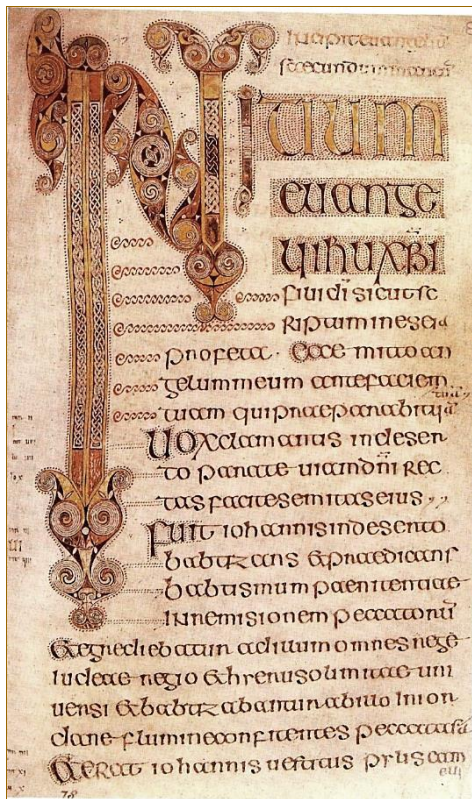 INITIUM
EUANGE
LII IHU XPI
filii di sicut sc
riptum in eseia
profeta · Ecce mitto an
gelum meum ante faciem
tuam qui praeparabit uiā
tuam
UOX clamantis in deser
to parate uiam dn̄i rec
tas facite semitas eius
FUIT iohannis in deserto
babtizans & praedicans
babtismum paenitentiae
in remisionem peccatorū
& egrediebatur ad illum omnes
iudeae regio & hierusolimitae uni
uersi & babtizabantur ab illo in ior
dane flumine confitentes peccata
& erat iohannis uestitus pylis cam
78